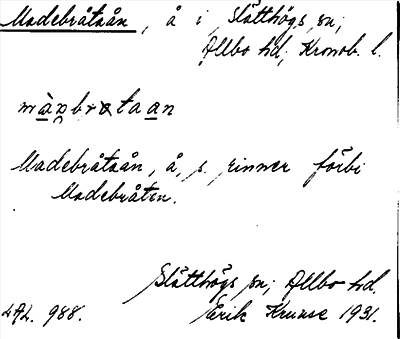 Madebråtaån, å i Slätthögs sn;
Allbo hd, Kronob. l.
màꝺbrɑtaan
Madebråtaån, å, s. rinner förbi
Madebråten.
Slätthögs sn; Allbo hd.
LAL. 988. Erik Kruuse 1931.